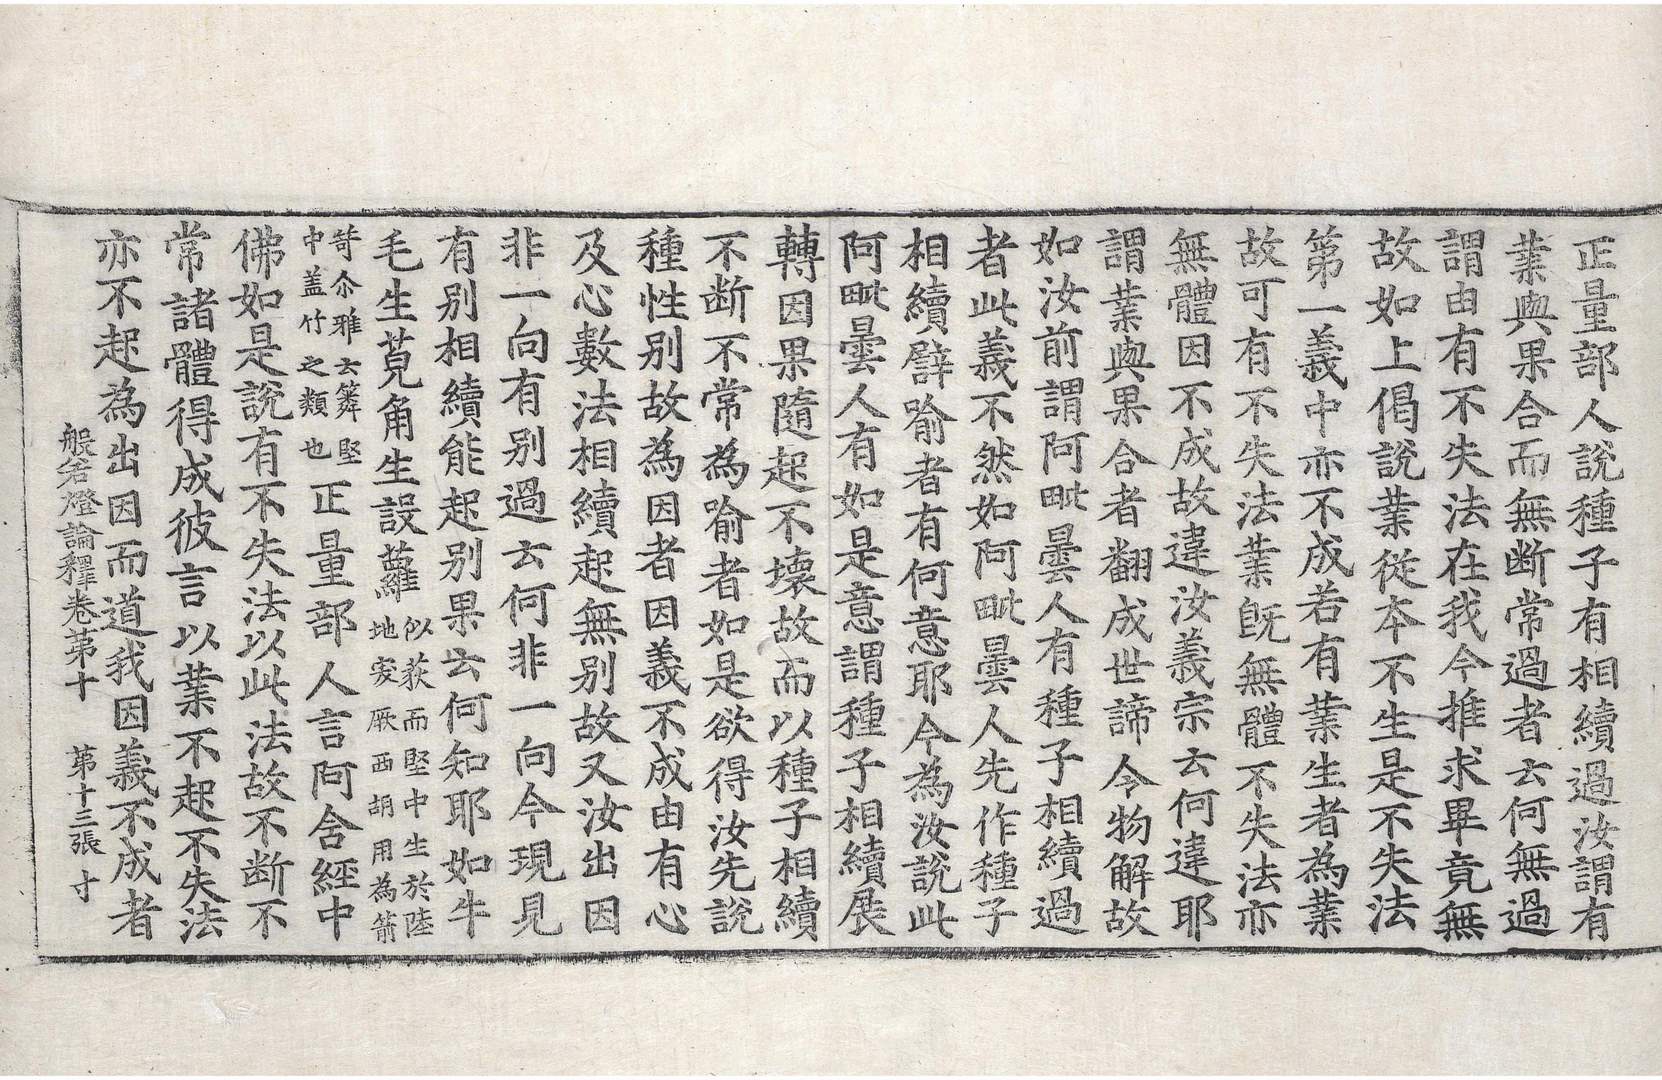 正量部人說種子有相續過汝謂有
業與果合而無断常過者云何無過
謂由有不失法在我今推求畢竟無
故如上偈說業從本不生是不失法
第一義中亦不成若有業生者為業
故可有不失法業旣無體不失法亦
無體因不成故違汝義宗云何違耶
謂業與果合者翻成世諦令物解故
如汝前謂阿毗曇人有種子相續過
者此義不然如阿毗曇人先作種子
相續譬喻者有何意耶今為汝說此
阿毗曇人有如是意謂種子相續展
轉因果隨起不壞故而以種子相續
不断不常為喻者如是欲得汝先說
種性别故為因者因義不成由有心
及心數法相續起無别故又汝出因
非一向有别過云何非一向今現見
有别相續能起别果云何知耶如牛
毛生莧角生設蘿似荻而堅中生於陸地突厥西胡用為箭
笴尒雅云簩堅中盖竹之類也正量部人言阿含經中
佛如是說有不失法以此法故不断不
常諸體得成彼言以業不起不失法
亦不起為出因而道我因義不成者
般若燈論釋卷第十 第十三張 寸